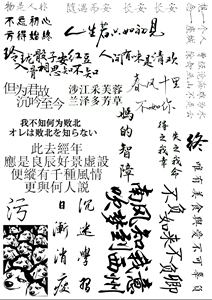 物是人非
不忘初心
方得始终
随遇而安
长安
人生若只如初见
玲珑骰子安红豆
入骨相思知不知
人间有味是清欢
春风十里
不如你
但为君故
沉吟至今
涉江采芙蓉
兰泽多芳草
我不知何为败北
オレは敗北を知らない
媽的智障
得之我幸
失之我命
終
此去經年
應是良辰好景虛設
便縱有千種風情
更與何人說
南风知我意
吹梦到西洲
不负如来不负卿
唯有美食與愛不可辜負
污
日漸消瘦
沉迷學習